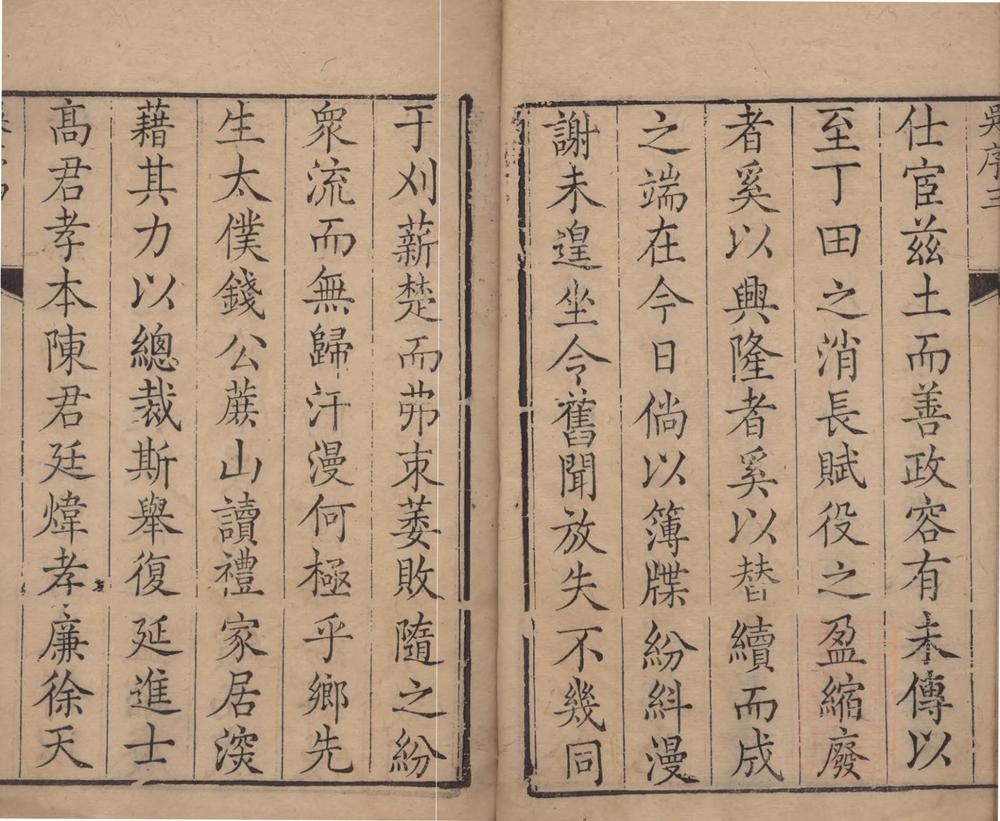 吳序三
仕宦茲土而善政容有未傳以
至丁田之消長賦役之盈縮廢
者奚以興隆者奚以替續而成
之端在今日倘以簿牒紛糾漫
謝未遑坐令舊聞放失不幾同
于刈薪楚而茀束蒌敗隨之紛
衆流而無歸汗漫何極乎鄉先
生太僕錢公蔗山讀禮家居深
藉其力以總裁斯舉復延進士
高君孝本陳君廷煒孝廉徐天